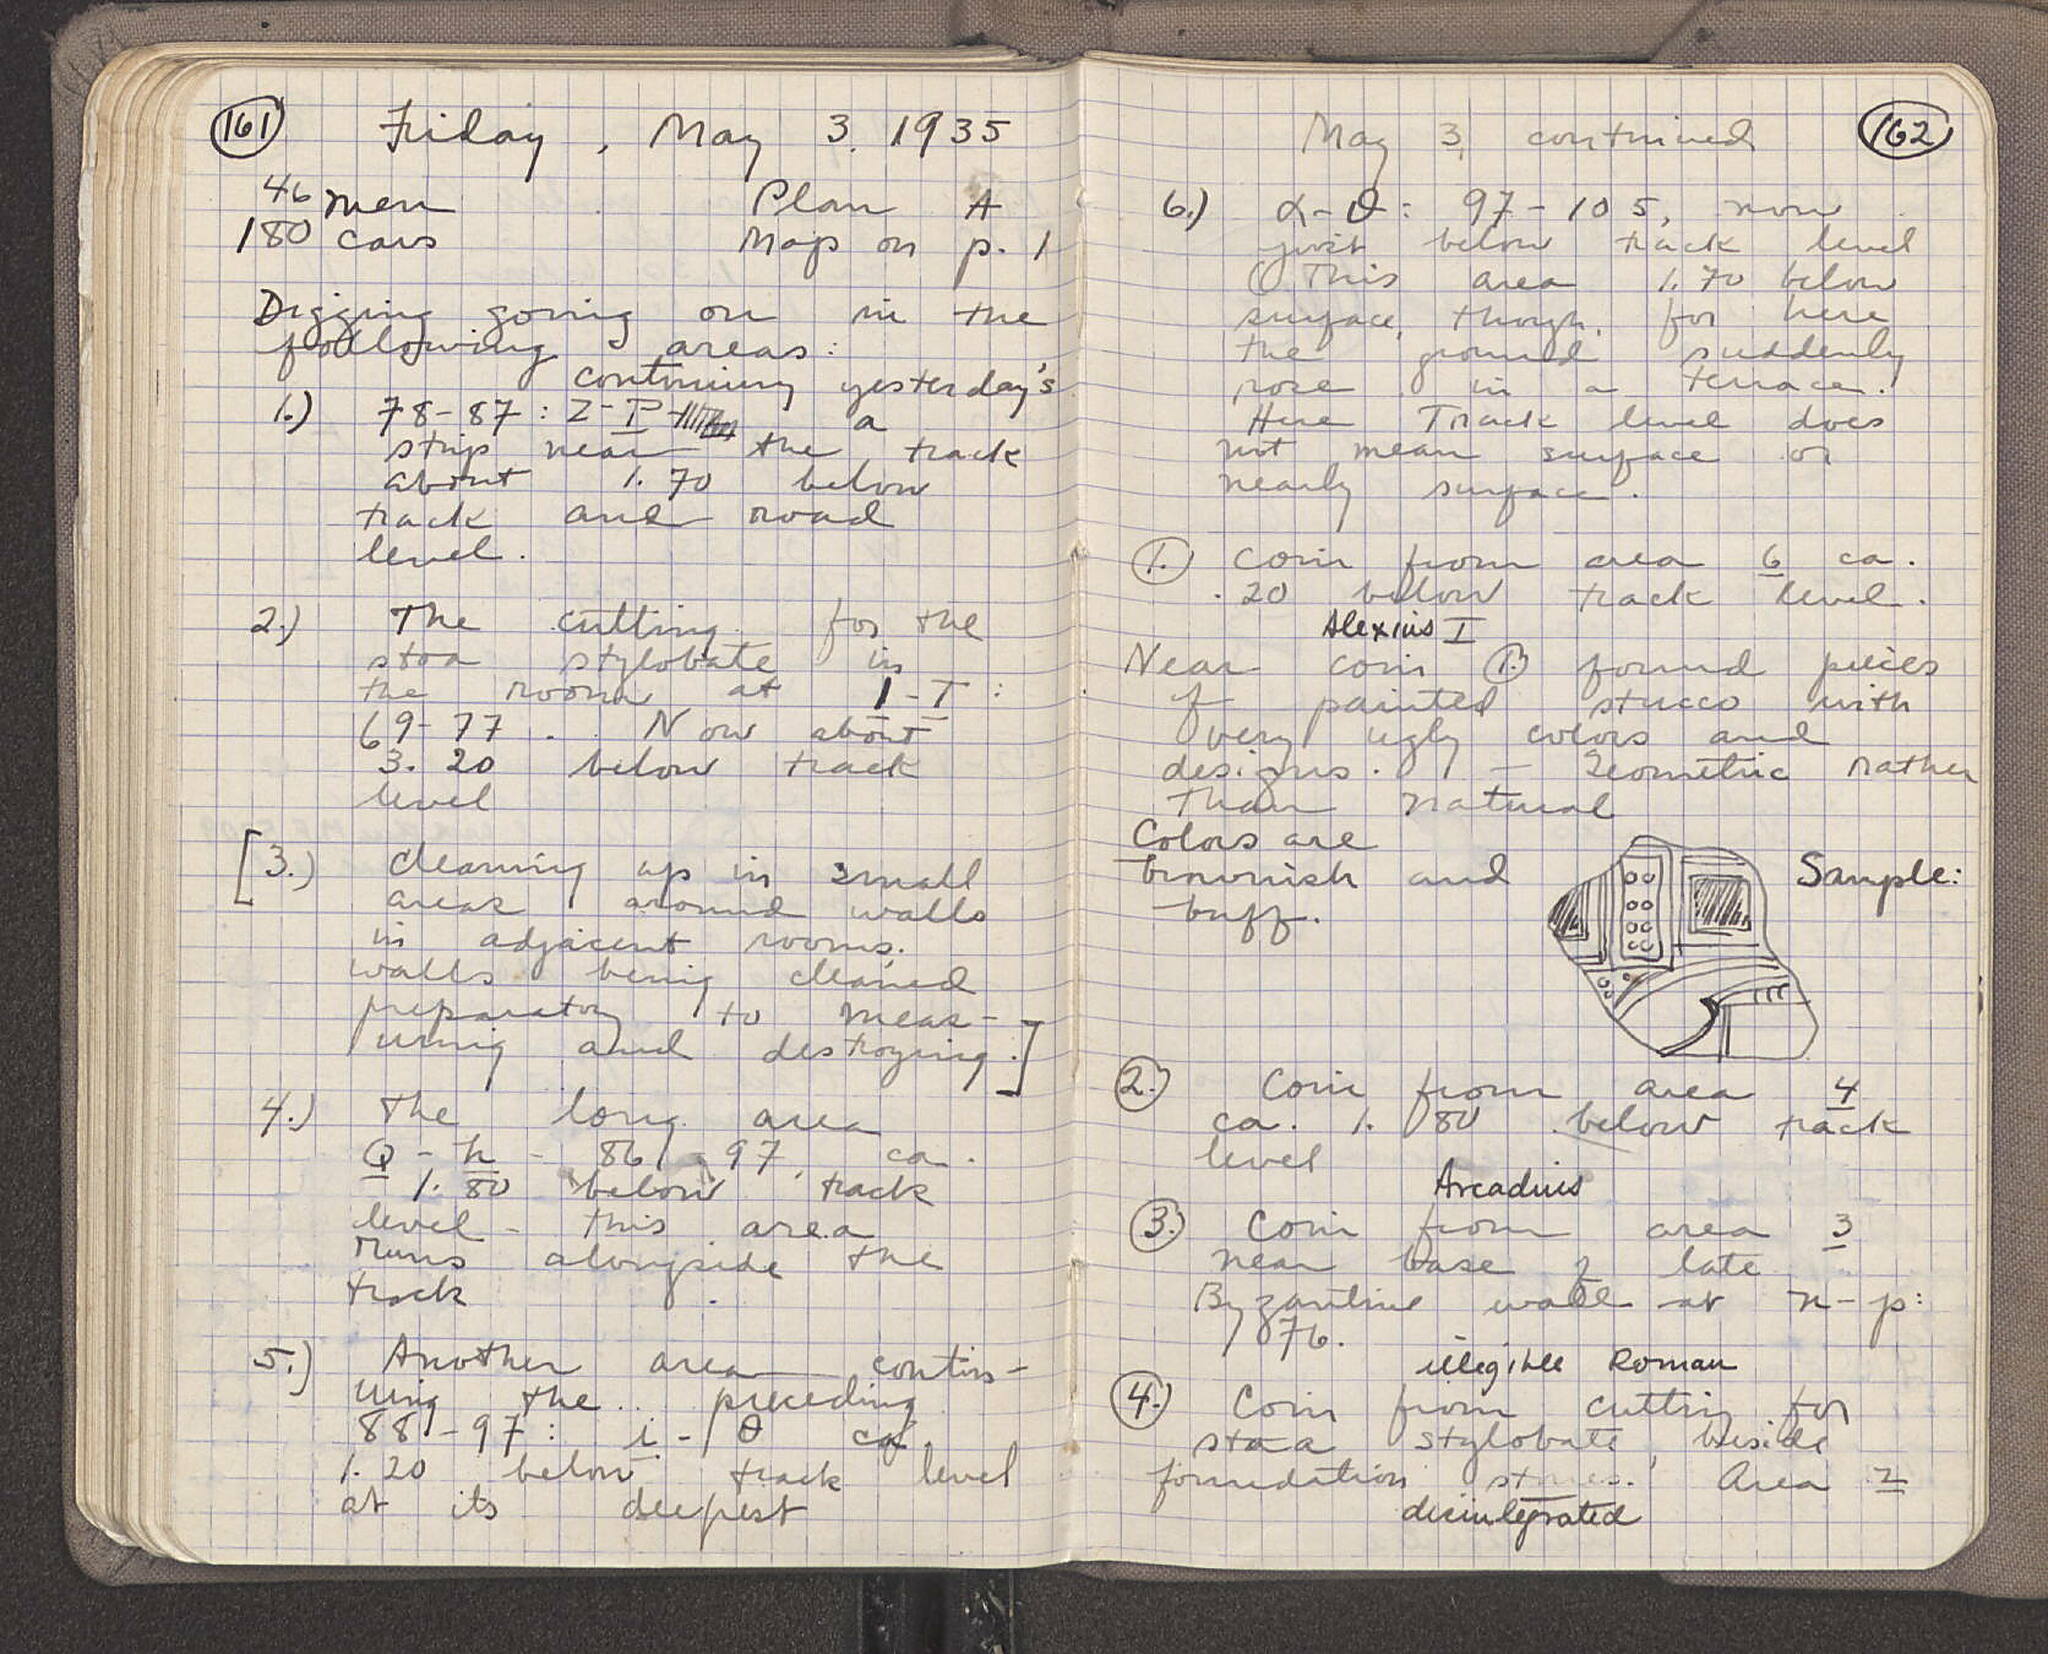 161 Friday, May 3. 1935
46 men Plan A
180 cars Map on p. 1
Digging going on in the
following areas:
continuing yesterday's
1.) 78-87: Z-T a
strip near the track
about 1.70 below
track and road
level.
2.) The cutting for the
stoa stylobate in
the room at 1-T:
69-77. Now about
3.20 below track
level
[3.) Cleaning up in small
areas around walls
in adjacent rooms.
walls being cleaned
preparatory to meas-
uring and destroying.]
4.) The long area
Q-h - 86-97, ca.
1.80 below track
level - this area
runs alongside the
track
5.) Another area contin-
uing the preceding
88-97: i-θ ca
1.20 below track level
at its deepest
May 3, continued 162
6.) α-θ: 97-105, now
just below track level
This area 1.70 below
surface, though, for here
the ground suddenly
rose in a terrace.
Here Track level does
not mean surface or
nearly surface.
1. Coin from area 6 ca.
.20 below track level.
Alexius I
Near coin 1. found pieces
of painted stucco with
very ugly colors and
designs. - Geometric rather
than natural
Colors are
brownish and Sample:
buff.
2. Coin from area 4
ca. 1.80 below track
level
Arcadius
3. Coin from area 3
near base of late
Byzantine wall at n-p:
76.
illegible Roman
4. Coin from cutting for
stoa stylobate, beside
foundation stones. Area 2
disintegrated